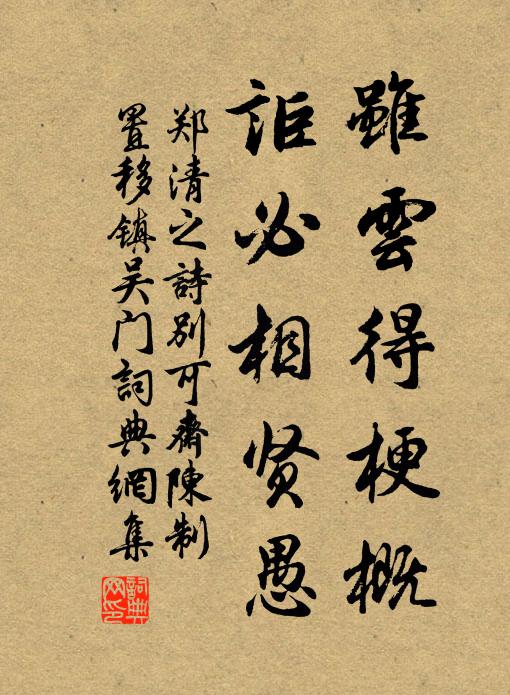 雖雲得梗概
詎必相贤愚
郑清之詩别可齋陳制
置移镇吴门詞典網集
詞典网印